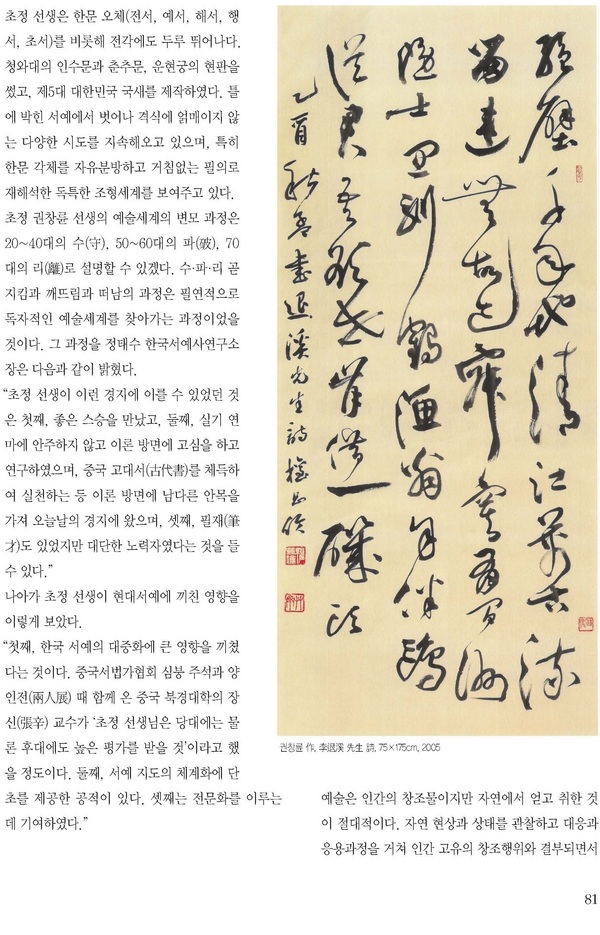 초정 선생은 한문 오체(전서, 예서, 해서, 행
서, 초서)를 비롯해 전각에도 두루 뛰어나다.
청와대의 인수문과 춘추문, 운현궁의 현판을
썼고, 제5대 대한민국 국새를 제작하였다. 틀
에 박힌 서예에서 벗어나 격식에 얽매이지 않
는 다양한 시도를 지속해오고 있으며, 특히
한문 각체를 자유분방하고 거침없는 필의로
재해석한 독특한 조형세계를 보여주고 있다.
초정 권창륜 선생의 예술세계의 변모 과정은
20~40대의 수(守), 50~60대의 파(破), 70
대의 리(離)로 설명할 수 있겠다. 수·파·리 곧
지킴과 깨뜨림과 떠남의 과정은 필연적으로
독자적인 예술세계를 찾아가는 과정이었을
것이다. 그 과정을 정태수 한국서예사연구소
장은 다음과 같이 밝혔다.
“초정 선생이 이런 경지에 이를 수 있었던 것
은 첫째, 좋은 스승을 만났고, 둘째, 실기 연
마에 안주하지 않고 이론 방면에 고심을 하고
연구하였으며, 중국 고대서(古代書)를 체득하
여 실천하는 등 이론 방면에 남다른 안목을
가져 오늘날의 경지에 왔으며, 셋째, 필재(筆
才)도 있었지만 대단한 노력자였다는 것을 들
수 있다.”
나아가 초정 선생이 현대서예에 끼친 영향을
이렇게 보았다.
“첫째, 한국 서예의 대중화에 큰 영향을 끼쳤
다는 것이다. 중국서법가협회 심붕 주석과 양
인전(兩人展) 때 함께 온 중국 북경대학의 장
신(張辛) 교수가 ‘초정 선생님은 당대에는 물
론 후대에도 높은 평가를 받을 것’이라고 했
을 정도이다. 둘째, 서예 지도의 체계화에 단
초를 제공한 공적이 있다. 셋째는 전문화를 이루는
데 기여하였다.”
乙酉秋 書退溪先生詩
권창륜 作, 李退溪 先生 詩, 75×175cm, 2005
예술은 인간의 창조물이지만 자연에서 얻고 취한 것
이 절대적이다. 자연 현상과 상태를 관찰하고 대응과
응용과정을 거쳐 인간 고유의 창조행위와 결부되면서
81